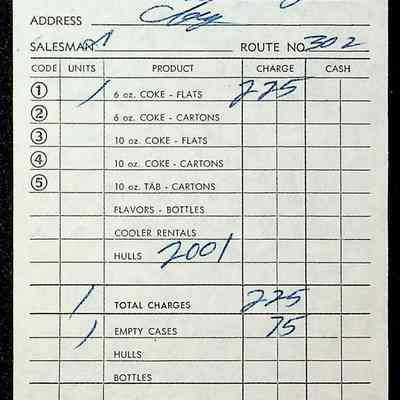 ADDRESS
SALESMAN ROUTE NO. 302
CODE UNITS PRODUCT CHARGE CASH
1 1 6 oz. COKE - FLATS 225
2 6 oz. COKE - CARTONS
3 10 oz. COKE - FLATS
4 10 oz. COKE - CARTONS
5 10 oz. TAB - CARTONS
FLAVORS - BOTTLES
COOLER RENTALS
HULLS 2001
1 TOTAL CHARGES 225
1 EMPTY CASES 75
HULLS
BOTTLES